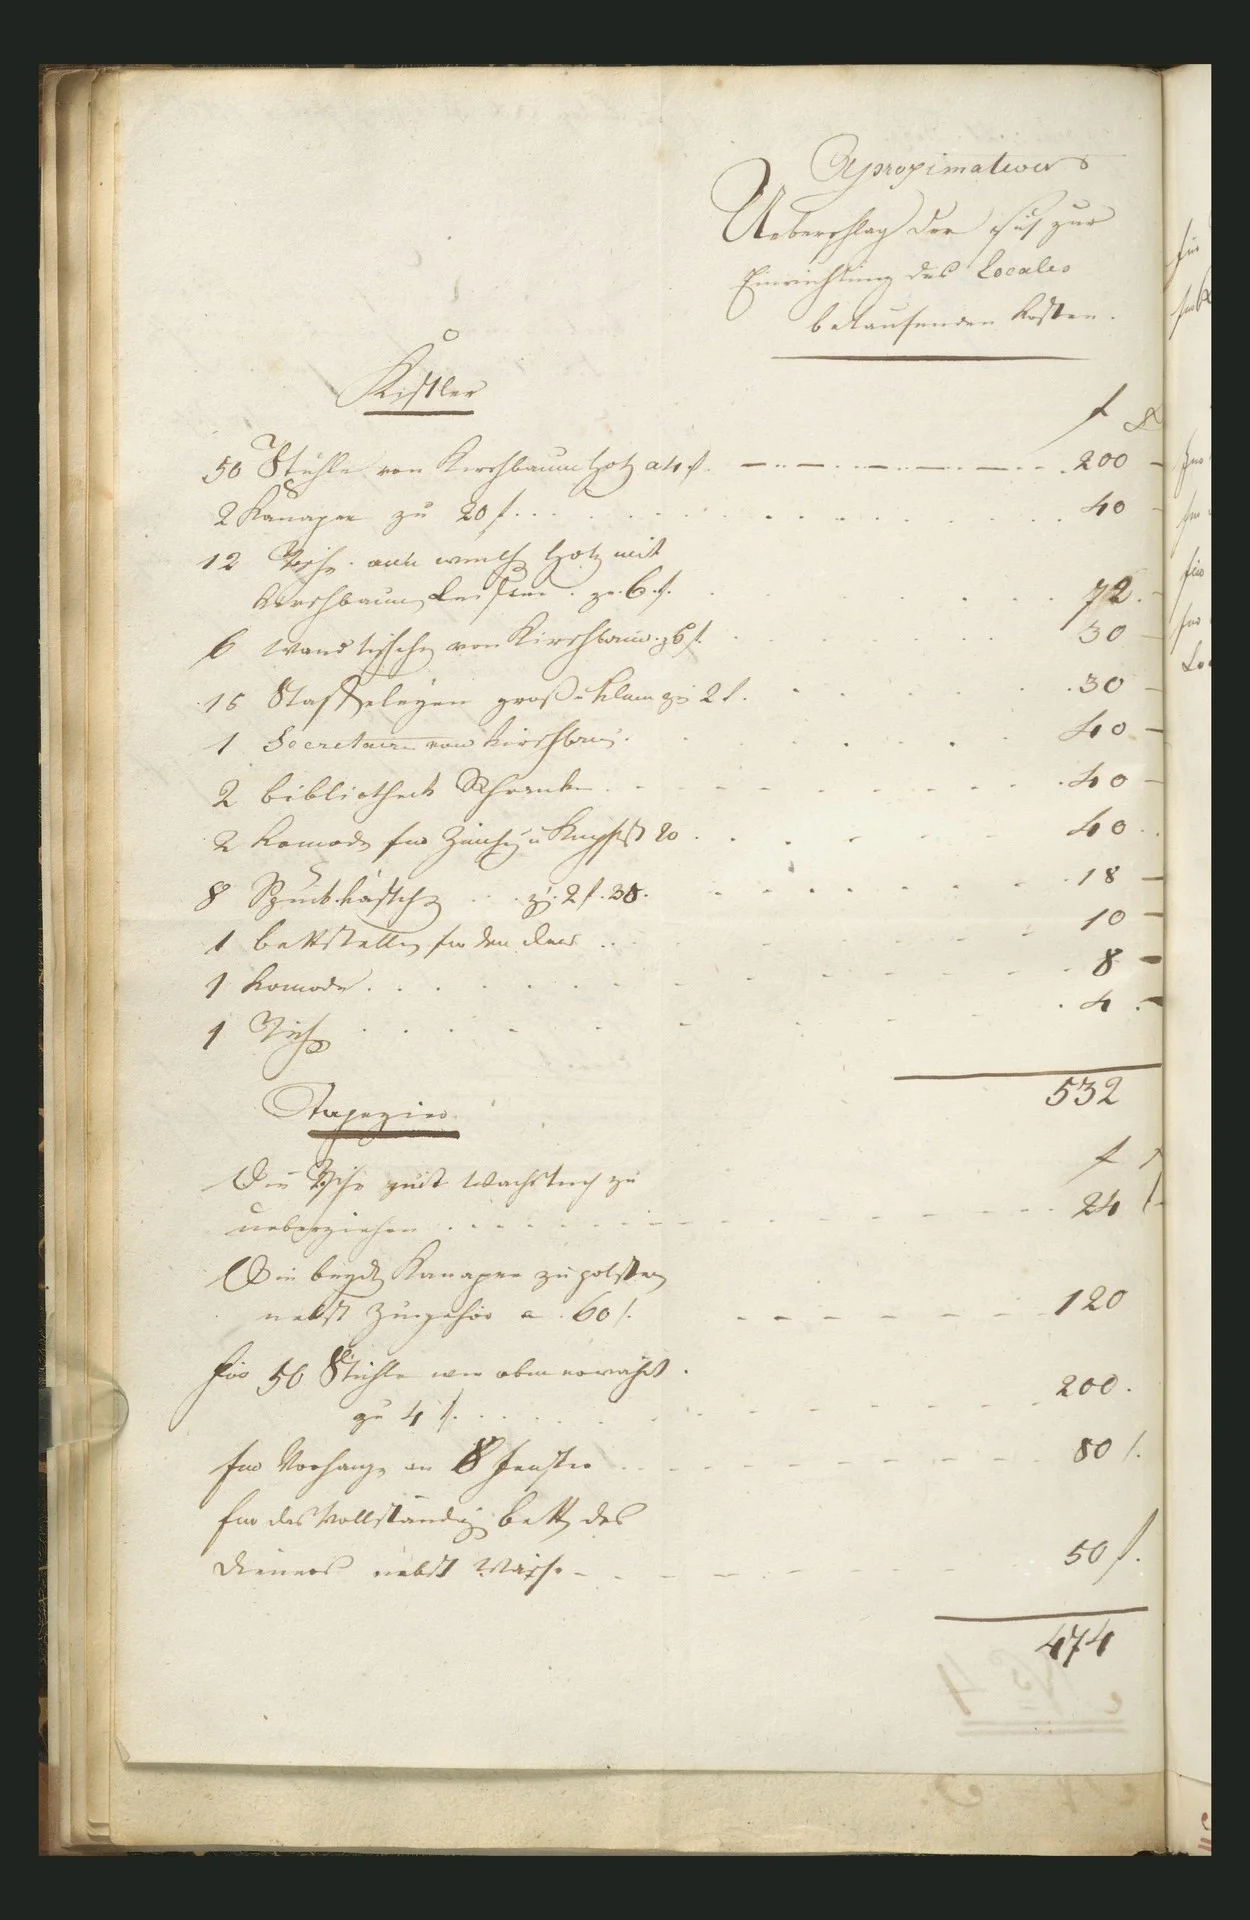 Approximativer
Ueberschlag der sich zur
Einrichtung des Locales
belaufenden Kosten.
Kistler
f
50 Stühle von Kirschbaum Holz a 4 f. 200 –
2 Kanapee zu 20 f. 40 –
12 Tische von weich Holz mit
Kirschbaum Leisten zu 6 f. 72 –
6 Wand tischch von Kirschbaum z 5 f. 30 –
15 Staffeleyen groß u klein zu 2 f. 30 –
1 Secretaire von Kirschbaum 40 –
2 bibliotheck Schranke 40 –
2 Komode für Zeichng u Kupfst 20 40
8 Spuckkästch zu 2 f. 30. 18 –
1 bettstelle für den Diener 10 –
1 Komode 8 –
1 Tisch 4 –
532
Tapezier
f
Die Tische mit Wachstuch zu
ueberziehen 24
Die beyden Kanapee zu polstern
nebst Zugehör a 60 f. 120
für 50 Stühle wie oben erwähnt
zu 4 f. 200.
für Vorhänge an 8 Fenster 80 f.
für das Vollständige Bett des
Dieners nebst Wäsche 50 f.
474